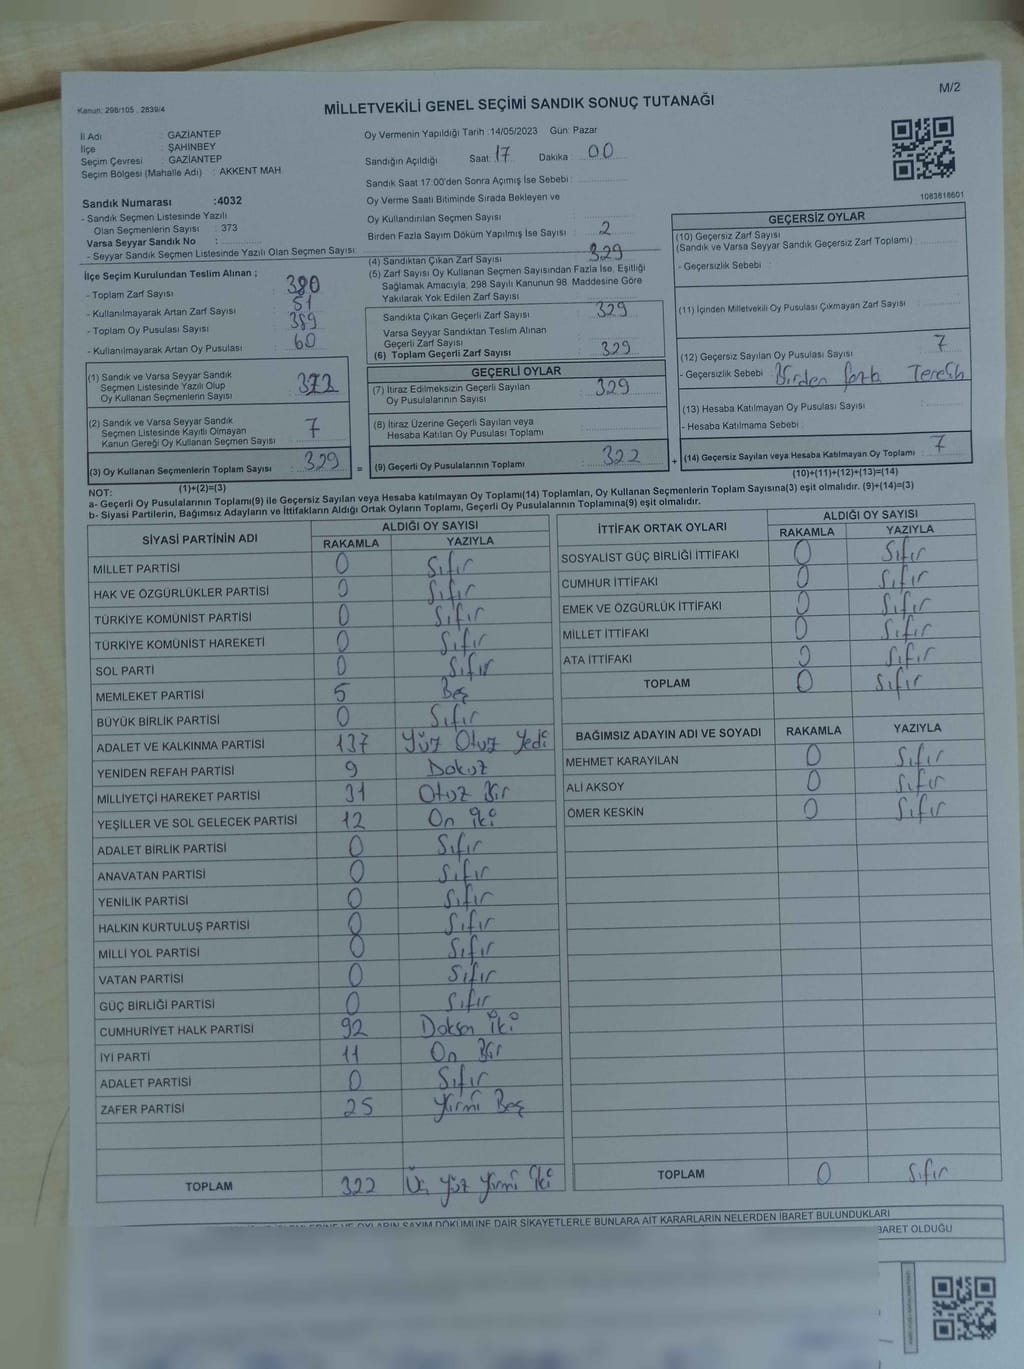 M/2
Kanun: 298/105 , 2839/4
MİLLETVEKİLİ GENEL SEÇİMİ SANDIK SONUÇ TUTANAĞI
İl Adı : GAZİANTEP
İlçe : ŞAHİNBEY
Seçim Çevresi : GAZİANTEP
Seçim Bölgesi (Mahalle Adı) : AKKENT MAH.
Oy Vermenin Yapıldığı Tarih :14/05/2023 Gün: Pazar
Sandığın Açıldığı Saat: 17 Dakika : 00
Sandık Saat 17:00'den Sonra Açımış İse Sebebi :
Oy Verme Saati Bitiminde Sırada Bekleyen ve
Oy Kullandırılan Seçmen Sayısı :
Birden Fazla Sayım Döküm Yapılmış İse Sayısı : 2
1083818601
Sandık Numarası :4032
- Sandık Seçmen Listesinde Yazılı
Olan Seçmenlerin Sayısı : 373
Varsa Seyyar Sandık No :
- Seyyar Sandık Seçmen Listesinde Yazılı Olan Seçmen Sayısı:
İlçe Seçim Kurulundan Teslim Alınan ;
- Toplam Zarf Sayısı : 380
- Kullanılmayarak Artan Zarf Sayısı : 51
- Toplam Oy Pusulası Sayısı : 389
- Kullanılmayarak Artan Oy Pusulası : 60
(1) Sandık ve Varsa Seyyar Sandık
Seçmen Listesinde Yazılı Olup
Oy Kullanan Seçmenlerin Sayısı :
(2) Sandık ve Varsa Seyyar Sandık
Seçmen Listesinde Kayıtlı Olmayan
Kanun Gereği Oy Kullanan Seçmen Sayısı : 7
(3) Oy Kullanan Seçmenlerin Toplam Sayısı : 329
(1)+(2)=(3)
(4) Sandıktan Çıkan Zarf Sayısı : 329
(5) Zarf Sayısı Oy Kullanan Seçmen Sayısından Fazla İse, Eşitliği
Sağlamak Amacıyla, 298 Sayılı Kanunun 98. Maddesine Göre
Yakılarak Yok Edilen Zarf Sayısı :
Sandıkta Çıkan Geçerli Zarf Sayısı : 329
Varsa Seyyar Sandıktan Teslim Alınan
Geçerli Zarf Sayısı :
(6) Toplam Geçerli Zarf Sayısı : 329
GEÇERLİ OYLAR
(7) İtiraz Edilmeksizin Geçerli Sayılan
Oy Pusulalarının Sayısı : 329
(8) İtiraz Üzerine Geçerli Sayılan veya
Hesaba Katılan Oy Pusulası Toplamı :
= (9) Geçerli Oy Pusulalarının Toplamı : 322 +
GEÇERSİZ OYLAR
(10) Geçersiz Zarf Sayısı
(Sandık ve Varsa Seyyar Sandık Geçersiz Zarf Toplamı) :
- Geçersizlik Sebebi :
(11) İçinden Milletvekili Oy Pusulası Çıkmayan Zarf Sayısı :
(12) Geçersiz Sayılan Oy Pusulası Sayısı : 7
- Geçersizlik Sebebi : Birden fazla Tercih
(13) Hesaba Katılmayan Oy Pusulası Sayısı :
- Hesaba Katılmama Sebebi :
(14) Geçersiz Sayılan veya Hesaba Katılmayan Oy Toplamı : 7
(10)+(11)+(12)+(13)=(14)
NOT:
a- Geçerli Oy Pusulalarının Toplamı(9) ile Geçersiz Sayılan veya Hesaba katılmayan Oy Toplamı(14) Toplamları, Oy Kullanan Seçmenlerin Toplam Sayısına(3) eşit olmalıdır. (9)+(14)=(3)
b- Siyasi Partilerin, Bağımsız Adayların ve İttifakların Aldığı Ortak Oyların Toplamı, Geçerli Oy Pusulalarının Toplamına(9) eşit olmalıdır.
SİYASİ PARTİNİN ADI ALDIĞI OY SAYISI
RAKAMLA YAZIYLA
MİLLET PARTİSİ 0 Sıfır
HAK VE ÖZGÜRLÜKLER PARTİSİ 0 Sıfır
TÜRKİYE KOMÜNİST PARTİSİ 0 Sıfır
TÜRKİYE KOMÜNİST HAREKETİ 0 Sıfır
SOL PARTİ 0 Sıfır
MEMLEKET PARTİSİ 5 Beş
BÜYÜK BİRLİK PARTİSİ 0 Sıfır
ADALET VE KALKINMA PARTİSİ 137 Yüz Otuz Yedi
YENİDEN REFAH PARTİSİ 9 Dokuz
MİLLİYETÇİ HAREKET PARTİSİ 31 Otuz Bir
YEŞİLLER VE SOL GELECEK PARTİSİ 12 On İki
ADALET BİRLİK PARTİSİ 0 Sıfır
ANAVATAN PARTİSİ 0 Sıfır
YENİLİK PARTİSİ 0 Sıfır
HALKIN KURTULUŞ PARTİSİ 0 Sıfır
MİLLİ YOL PARTİSİ 0 Sıfır
VATAN PARTİSİ 0 Sıfır
GÜÇ BİRLİĞİ PARTİSİ 0 Sıfır
CUMHURİYET HALK PARTİSİ 92 Doksan İki
İYİ PARTİ 11 On Bir
ADALET PARTİSİ 0 Sıfır
ZAFER PARTİSİ 25 Yirmi Beş
TOPLAM 322 Üç Yüz Yirmi İki
İTTİFAK ORTAK OYLARI ALDIĞI OY SAYISI
RAKAMLA YAZIYLA
SOSYALİST GÜÇ BİRLİĞİ İTTİFAKI 0 Sıfır
CUMHUR İTTİFAKI 0 Sıfır
EMEK VE ÖZGÜRLÜK İTTİFAKI 0 Sıfır
MİLLET İTTİFAKI 0 Sıfır
ATA İTTİFAKI 0 Sıfır
TOPLAM 0 Sıfır
BAĞIMSIZ ADAYIN ADI VE SOYADI RAKAMLA YAZIYLA
MEHMET KARAYILAN 0 Sıfır
ALİ AKSOY 0 Sıfır
ÖMER KESKİN 0 Sıfır
TOPLAM 0 Sıfır
VE OYLARIN SAYIM DÖKÜMÜNE DAİR ŞİKAYETLERLE BUNLARA AİT KARARLARIN NELERDEN İBARET BULUNDUKLARI
BARET OLDUĞU